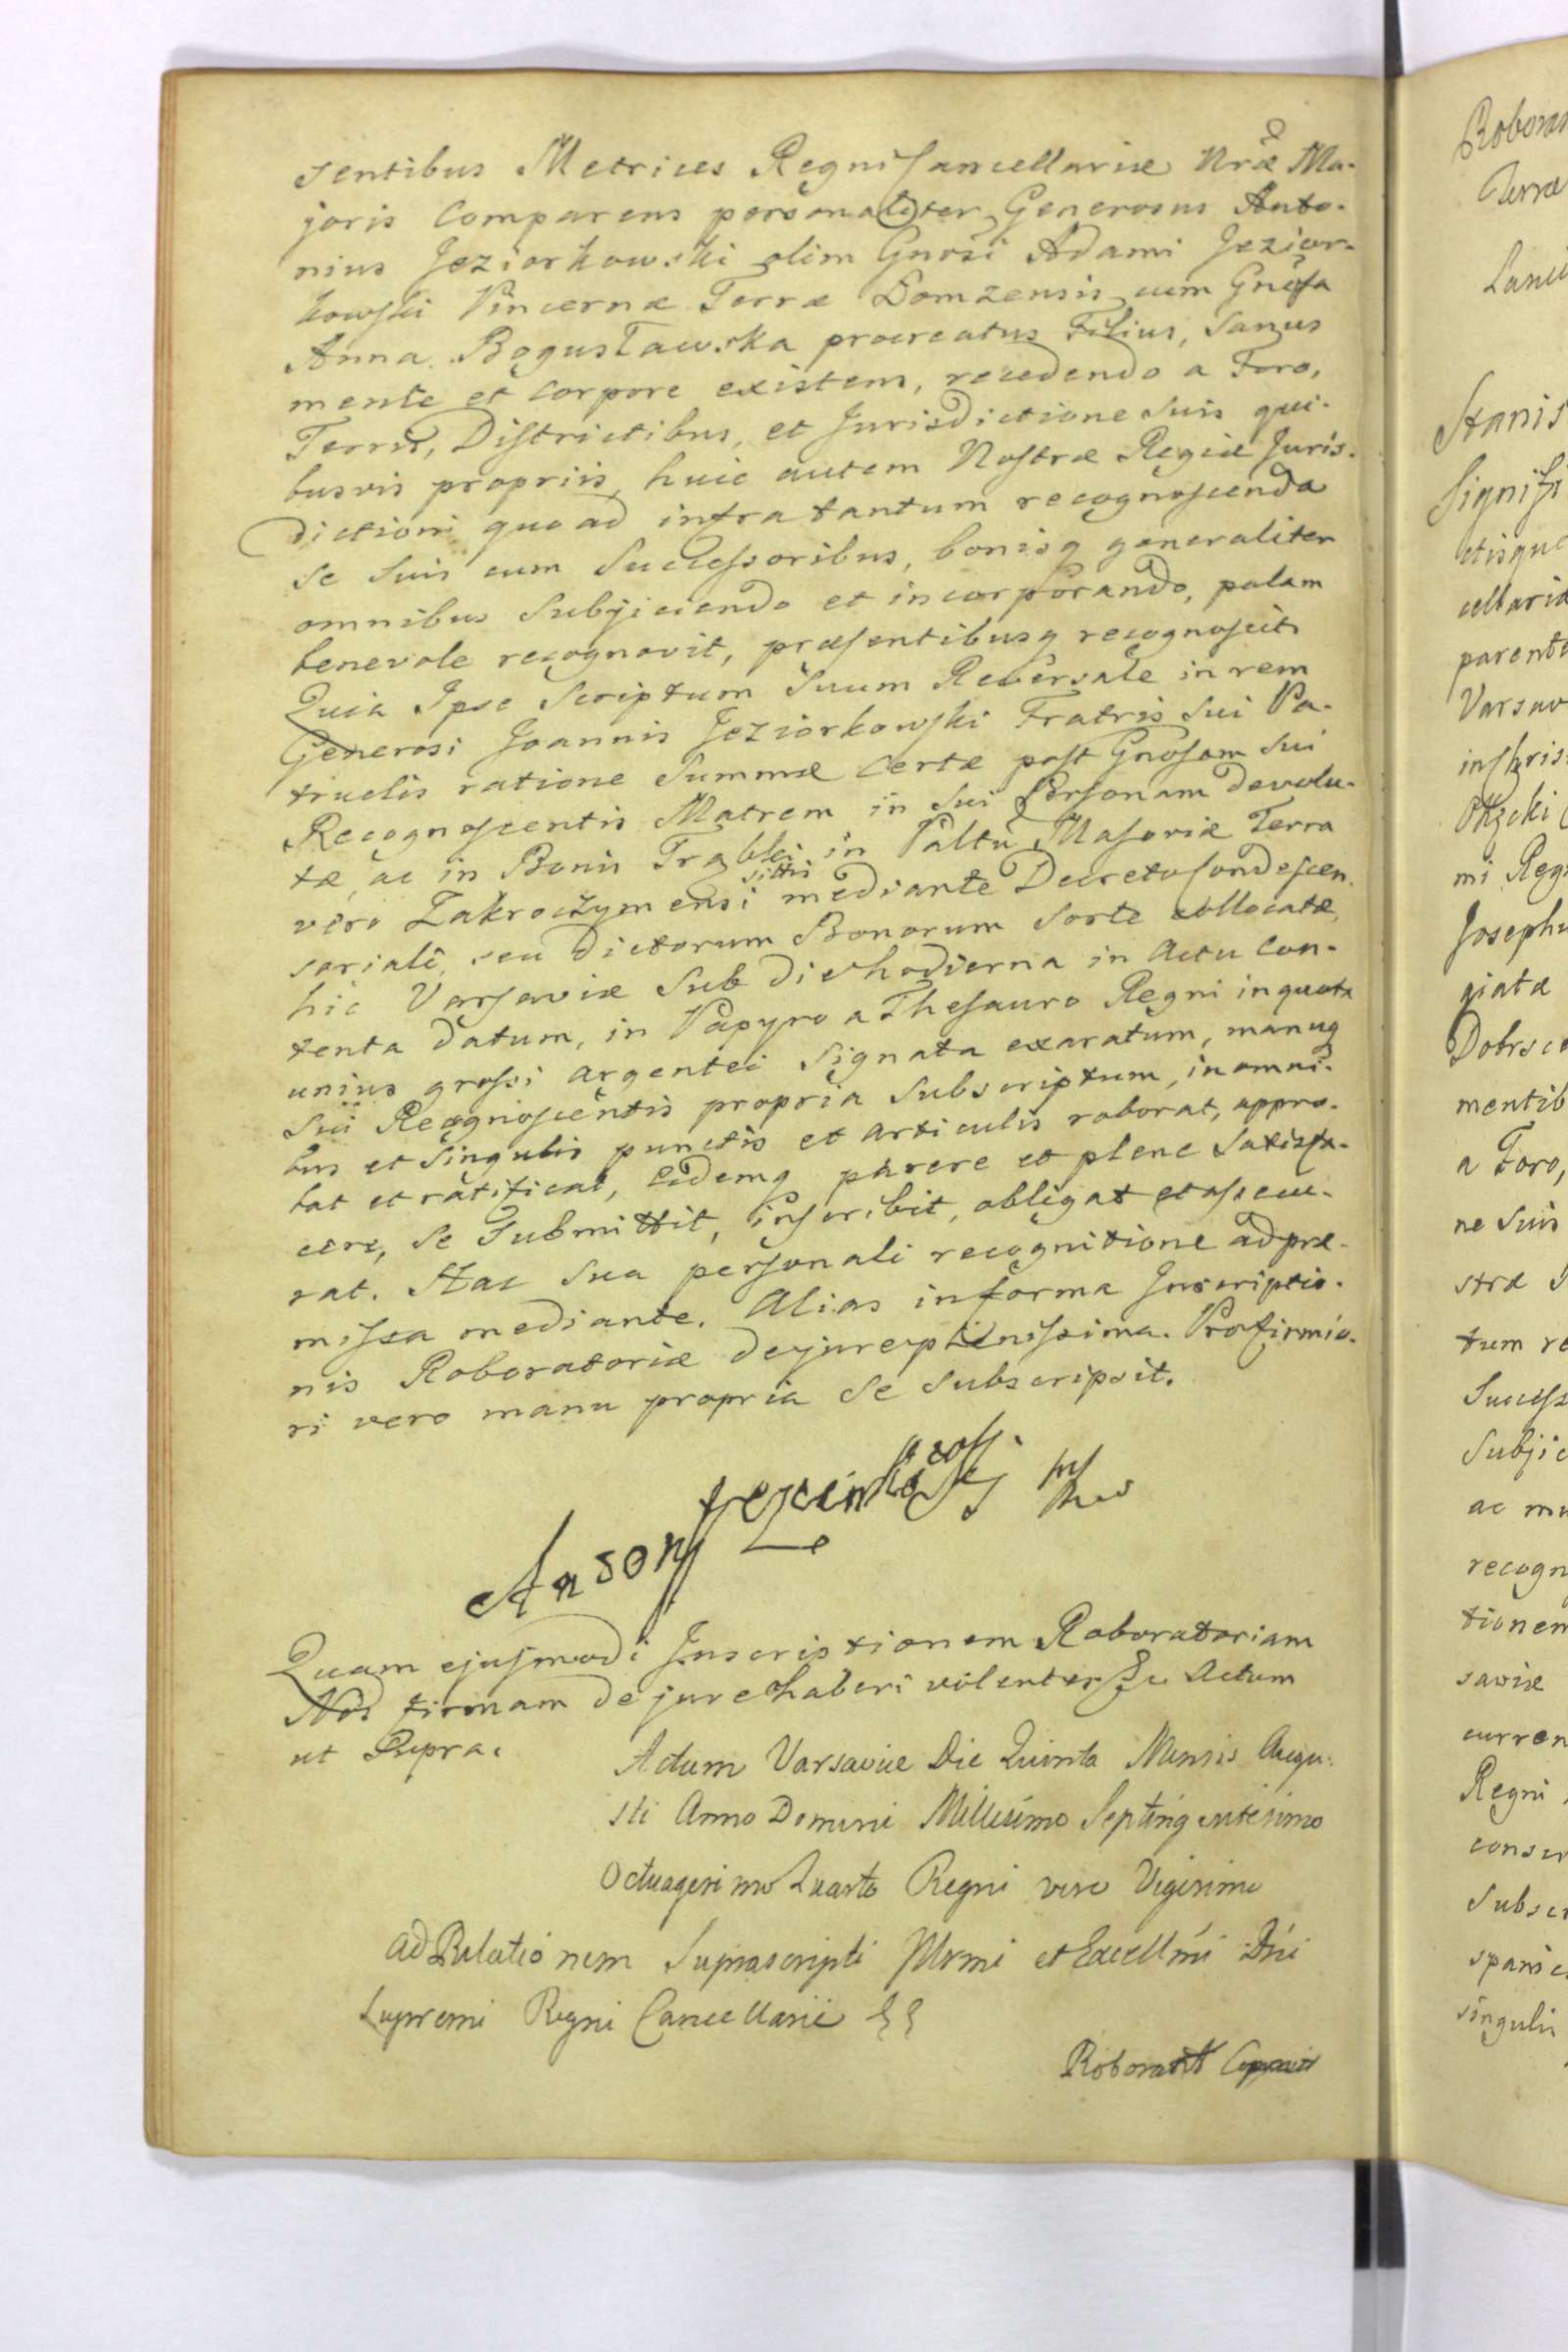 sentibus Metrices Regni Cancellariæ Nræ Ma-
joris Comparens personaliter Generosus Anto-
nius Jeziorkowski olim Gnosi Adami Jezior-
kowski Pincernæ Terræ Łomzensis cum Gnosa
Anna Bogusławska procreatus Filius, Sanus
mente et Corpore existens, recedendo a Foro,
Terris, Districtibus, et Jurisdictione Suis qui-
busvis propriis, huic autem Nostræ Regiæ Juris-
dictioni quo ad infra tantum recognoscenda
Se Suis cum Successoribus, bonisq generaliter
omnibus Subjiciendo et incorporando, palam
benevole recognovit, præsentibusq recognoscit
Quia Ipse Scriptum Suum Reversale in rem
Generosi Joannis Jeziorkowski Fratris Sui Pa-
truelis ratione Summæ Certæ post Gnosam Sui
Recognoscentis Matrem in Sui Personam devolu-
tæ, ac in Bonis in Paltu Masoviæ Terra
vero Zakroczymensi sitis mediante Decreto Condescen-
soriali, seu dictorum Bonorum Sorte collocatæ,
hic Varsaviæ Sub die hodierna in Actu Con-
tenta datum, in Papyro a Thesauro Regni in quota
unius grossi argentei Signata exaratum, manuq
Sui Recognoscentis propria Subscriptum, in omni-
bus et Singulis punctis et articulis roborat, appro-
bat et ratificat, Eidemq parere et plene Satisfa-
cere, Se Submittit, inscribit, obligat et assecu-
rat. Hac Sua personali recognitione ad præ-
missa mediante. Alias in forma Inscriptio-
nis Roboratoriæ de jure plenissima. Pro firmio-
ri vero manu propria Se Subscripsit.
Antonj Jeziorkowskj
Quam ejusmodi Inscriptionem Roboratoriam
Nos firmam de jure haberi volentes &c Actum
ut Supra.
Actum Varsaviæ Die Quinta Mensis Augu-
sti Anno Domini Millesimo Septingentesimo
Octuagesimo Quarto Regni vero Vigesimo
ad Relationem Suprascripti Illrmi et Excellmi Dni
Supremi Regni Cancellarii
Roborar
Terræ
Stanis
Signifi
ctisque
cellariæ
parente
Varsav
inscris
mi Reg
Joseph
giatæ
mentib
a Foro,
ne Suis
stræ
tum re
Success
Subjic
ac mu
recogn
tionem
saviæ
curren
Regni
conser
Subscr
singulis